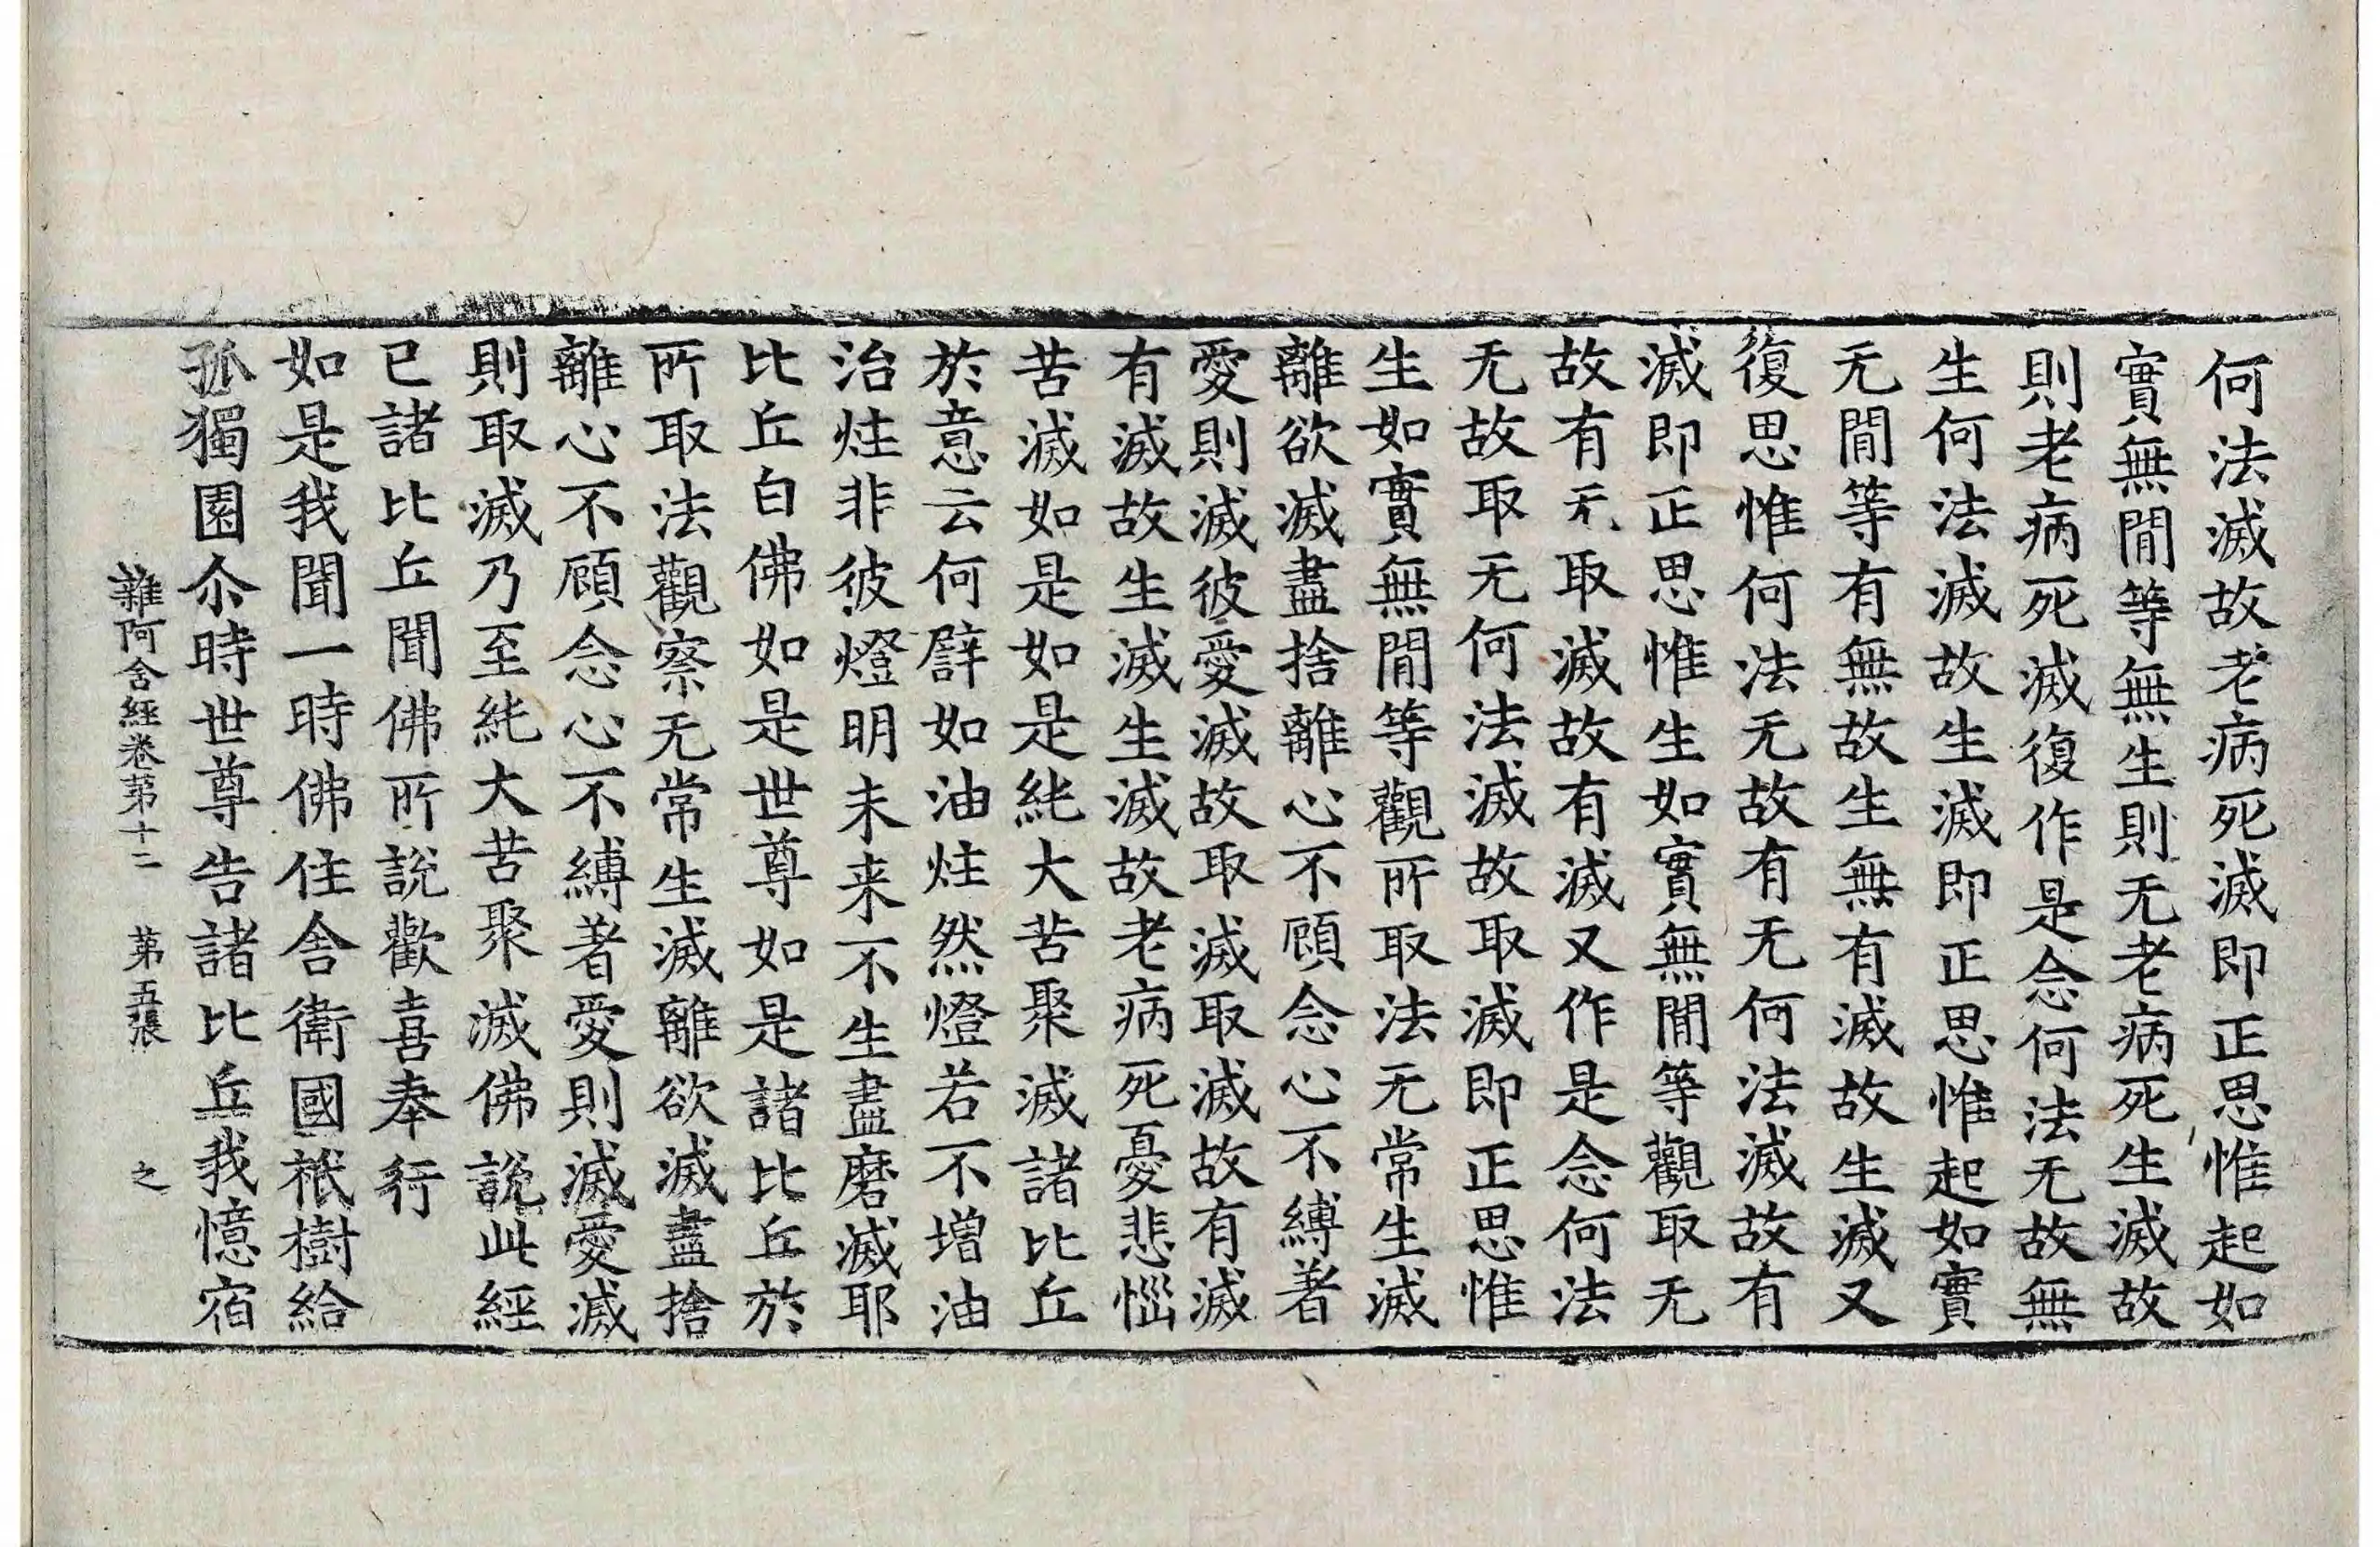 何法滅故老病死滅即正思惟起如
實無閒等無生則无老病死生滅故
則老病死滅復作是念何法无故無
生何法滅故生滅即正思惟起如實
无閒等有無故生無有滅故生滅又
復思惟何法无故有无何法滅故有
滅即正思惟生如實無閒等觀取无
故有无取滅故有滅又作是念何法
无故取无何法滅故取滅即正思惟
生如實無閒等觀所取法无常生滅
離欲滅盡捨離心不顧念心不縛著
愛則滅彼愛滅故取滅取滅故有滅
有滅故生滅生滅故老病死憂悲惱
苦滅如是如是純大苦聚滅諸比丘
於意云何譬如油炷然燈若不增油
治炷非彼燈明未来不生盡磨滅耶
比丘白佛如是世尊如是諸比丘於
所取法觀察无常生滅離欲滅盡捨
離心不顧念心不縛著愛則滅愛滅
則取滅乃至純大苦聚滅佛說此經
已諸比丘聞佛所說歡喜奉行
如是我聞一時佛住舍衛國祇樹給
孤獨園尒時世尊告諸比丘我憶宿
雜阿含經卷第十二 第五張 之